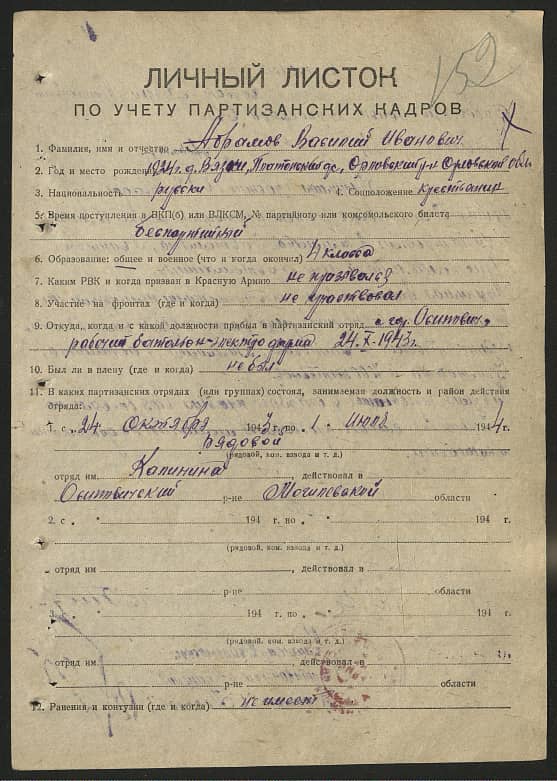 152
ЛИЧНЫЙ ЛИСТОК
ПО УЧЕТУ ПАРТИЗАНСКИХ КАДРОВ
1. Фамилия, имя и отчество Абрамов Василий Иванович
2. Год и место рождения 1924 г. д. Вязки, Орловской обл.
3. Национальность русский 4. Соцположение крестьянин
5. Время поступления в ВКП(б) или ВЛКСМ, № партийного или комсомольского билета
беспартийный
6. Образование: общее и военное (что и когда окончил) 4 класса
7. Каким РВК и когда призван в Красную Армию не призвался
8. Участие на фронтах (где и когда) не участвовал
9. Откуда, когда и с какой должности прибыл в партизанский отряд с гор. Осипович,
рабочий батальон 24.X-1943 г.
10. Был ли в плену (где и когда) не был
11. В каких партизанских отрядах (или группах) состоял, занимаемая должность и район действия
отряда:
1. с 24 октября 1943 г. по 1 июля 1944 г.
Рядовой
(рядовой, ком. взвода и т. д.)
отряд им Калинина, действовал в
Осиповичский р-не Могилевской области
2. с 194 г. по 194 г.
(рядовой, ком. взвода и т. д.)
отряд им , действовал в
р-не области
3. 194 г. по 194 г.
(рядовой, ком. взвода и т. д.)
отряд им действовал в
р-не области
12. Ранения и контузии (где и когда) не имеет